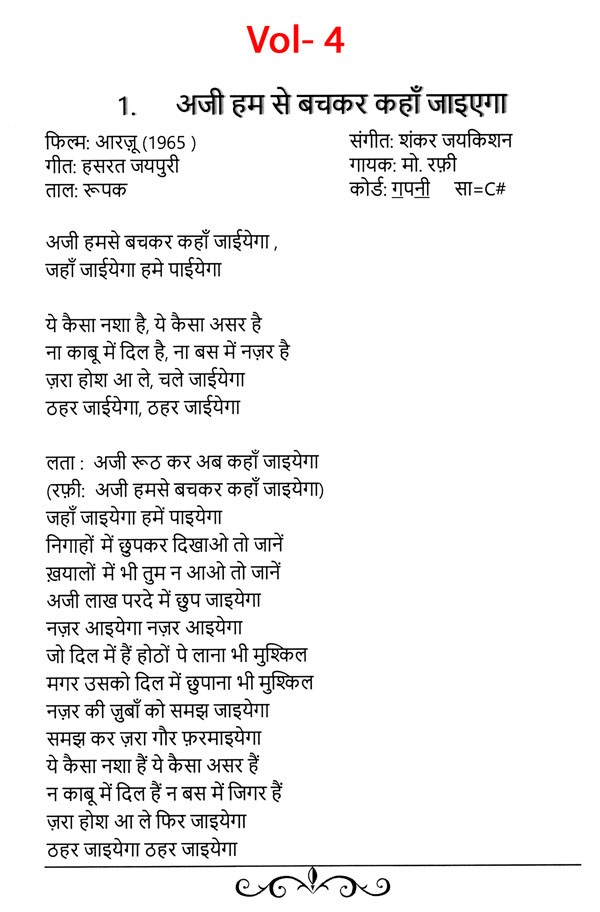 Vol- 4
1. अजी हम से बचकर कहाँ जाइएगा
फिल्म: आरज़ू (1965 ) संगीत: शंकर जयकिशन
गीत: हसरत जयपुरी गायक: मो. रफ़ी
ताल: रूपक कोर्ड: ग॒पनी॒ सा=C#
अजी हमसे बचकर कहाँ जाईयेगा ,
जहाँ जाईयेगा हमे पाईयेगा
ये कैसा नशा है, ये कैसा असर है
ना काबू में दिल है, ना बस में नज़र है
ज़रा होश आ ले, चले जाईयेगा
ठहर जाईयेगा, ठहर जाईयेगा
लता : अजी रूठ कर अब कहाँ जाइयेगा
(रफ़ी: अजी हमसे बचकर कहाँ जाइयेगा)
जहाँ जाइयेगा हमें पाइयेगा
निगाहों में छुपकर दिखाओ तो जानें
ख़यालों में भी तुम न आओ तो जानें
अजी लाख परदे में छुप जाइयेगा
नज़र आइयेगा नज़र आइयेगा
जो दिल में हैं होठों पे लाना भी मुश्किल
मगर उसको दिल में छुपाना भी मुश्किल
नज़र की ज़ुबाँ को समझ जाइयेगा
समझ कर ज़रा गौर फ़रमाइयेगा
ये कैसा नशा हैं ये कैसा असर हैं
न काबू में दिल हैं न बस में जिगर हैं
ज़रा होश आ ले फिर जाइयेगा
ठहर जाइयेगा ठहर जाइयेगा